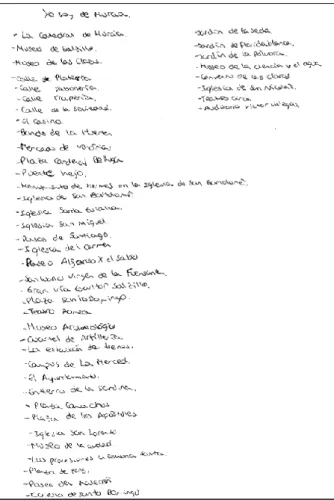 Yo soy de Murcia.
- La Catedral de Murcia
- Museo de Salzillo.
- Museo de las Claras.
- Calle de Platería.
- Calle Jabonería.
- Calle Trapería.
- Calle de la Sociedad.
- El casino.
- Bando de la Huerta
- Mercado de Verónicas
- Plaza Cardenal Belluga
- Puente viejo.
- Monumento de Nazarenos en la Iglesia de San Bartolomé.
- Iglesia de San Bartolomé.
- Iglesia Santa Eulalia.
- Iglesia San Miguel.
- Jardín de Santiago.
- Iglesia del Carmen
- Paseo Alfonso X el Sabio
- Santuario Virgen de la Fuensanta.
- Gran Vía Escultor Salzillo.
- Plaza Santo Domingo.
- Teatro Romea
- Museo Arqueológico
- Cuartel de Artillería
- La estación de trenes.
- Campus de La Merced.
- El Ayuntamiento.
- Entierro de la Sardina.
- Plaza Camachos
- Plaza de los Apóstoles
- Iglesia San Lorenzo
- Museo de la ciudad
- Las procesiones la Semana Santa.
- Plaza de toros.
- Paseo del Malecón
- Convento de Santo Domingo
- Jardín de la Seda
- Jardín de Floridablanca.
- Jardín de la Pólvora.
- Museo de la ciencia y el agua
- Convento de las Claras
- Iglesia de San Nicolás.
- Teatro Circo
- Auditorio Víctor Villegas.